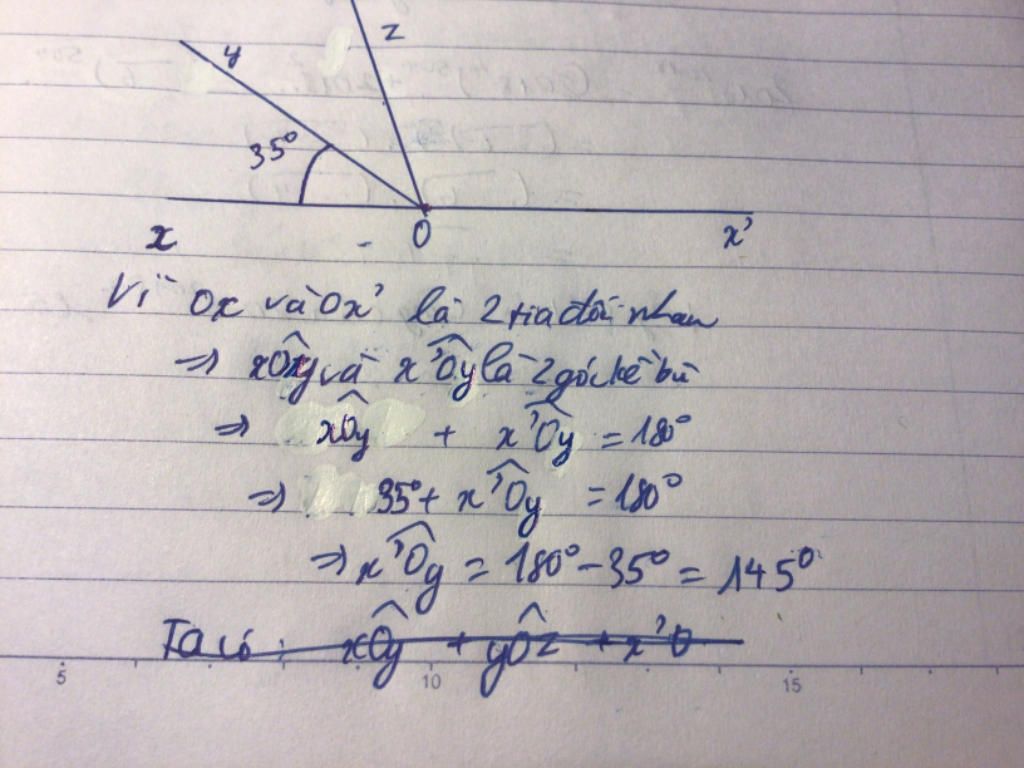 z
y
35°
x O x'
Vì Ox và Ox' là 2 tia đối nhau
=> xOy và x'Oy là 2 góc kề bù
=> xOy + x'Oy = 180°
=> 35° + x'Oy = 180°
=> x'Oy = 180° - 35° = 145°
Ta có : xOy + yOz + x'O
5 10 15